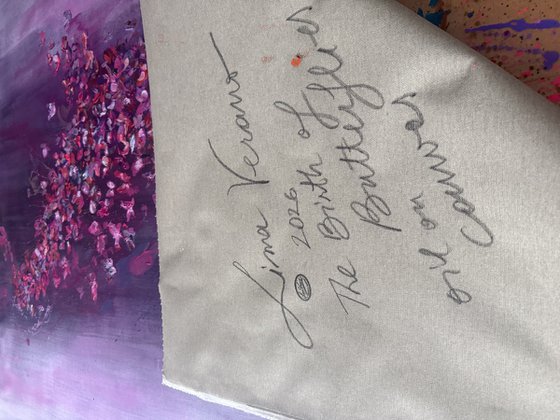 Lima Verano
© 2026
The Birth of
Butterflies
oil on
canvas